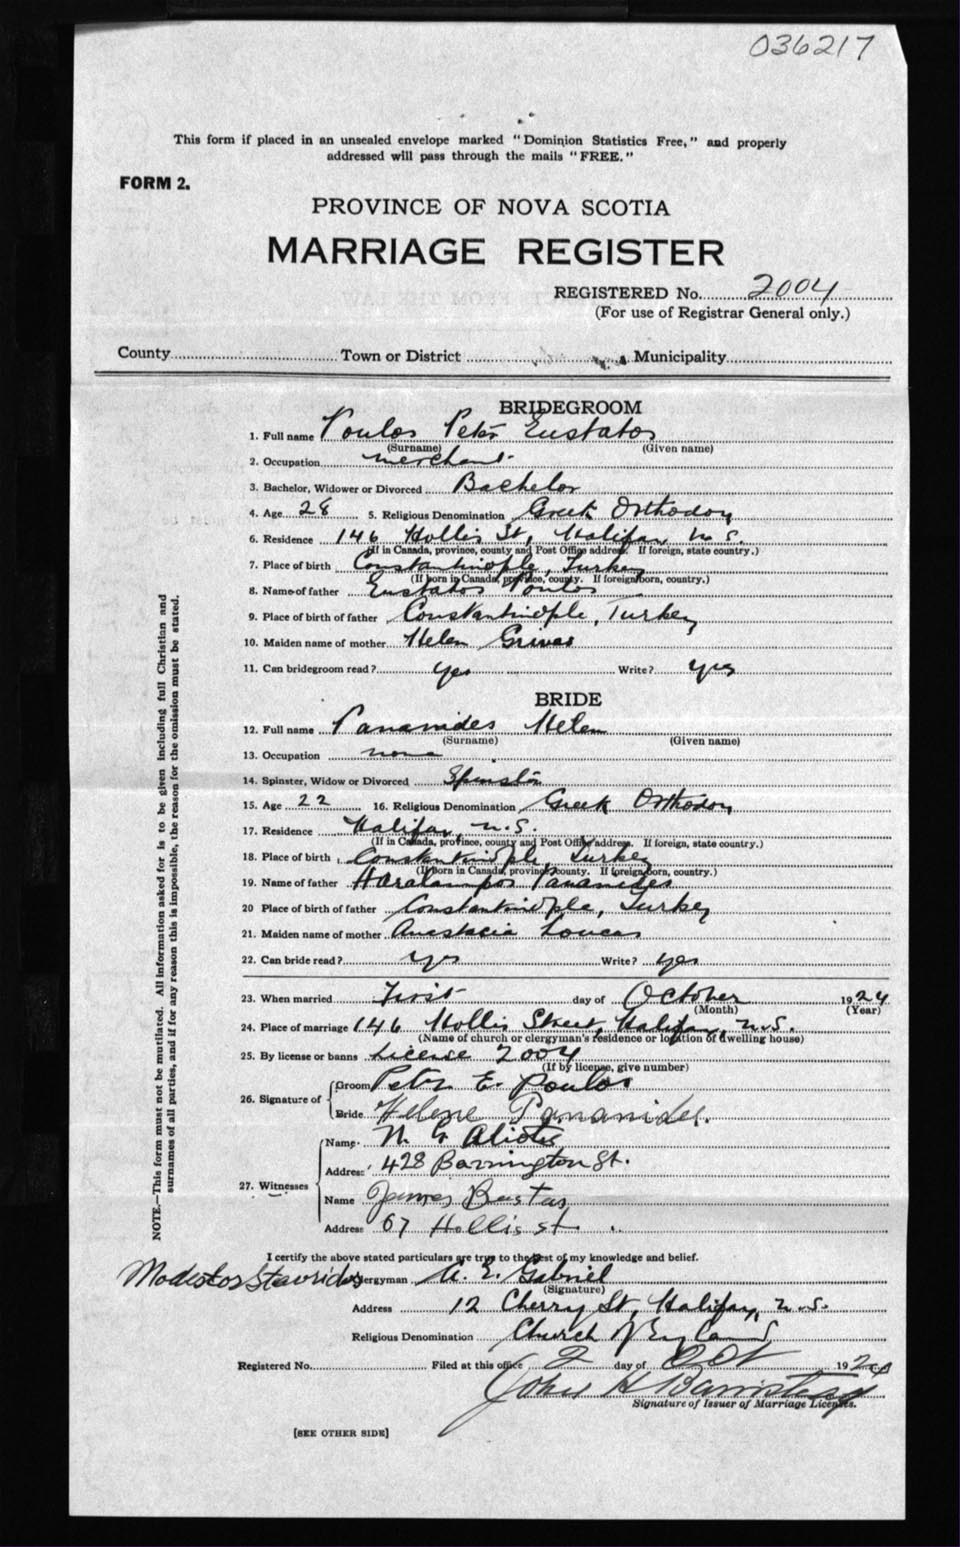 036217
This form if placed in an unsealed envelope marked "Dominion Statistics Free," and properly
addressed will pass through the mails "FREE."
FORM 2.
PROVINCE OF NOVA SCOTIA
MARRIAGE REGISTER
REGISTERED No. 2004
(For use of Registrar General only.)
County Town or District Municipality
BRIDEGROOM
1. Full name Poulos Peter Eustatos
(Surname) (Given name)
2. Occupation merchant
3. Bachelor, Widower or Divorced Bachelor
4. Age 28 5. Religious Denomination Greek Orthodox
6. Residence 146 Hollis St, Halifax N.S.
(If in Canada, province, county and Post Office address. If foreign, state country.)
7. Place of birth Constantinople, Turkey
(If born in Canada, province, county. If foreign born, country.)
8. Name of father Eustatos Poulos
9. Place of birth of father Constantinople, Turkey
10. Maiden name of mother Helen Grivas
11. Can bridegroom read? yes Write? yes
BRIDE
12. Full name Pananides Helen
(Surname) (Given name)
13. Occupation none
14. Spinster, Widow or Divorced Spinster
15. Age 22 16. Religious Denomination Greek Orthodox
17. Residence Halifax, N.S.
(If in Canada, province, county and Post Office address. If foreign, state country.)
18. Place of birth Constantinople, Turkey
(If born in Canada, province, county. If foreign born, country.)
19. Name of father Haralampos Pananides
20 Place of birth of father Constantinople, Turkey
21. Maiden name of mother Anastacia Loucas
22. Can bride read? yes Write? yes
23. When married First day of October 1924
(Month) (Year)
24. Place of marriage 146 Hollis Street, Halifax, N.S.
(Name of church or clergyman's residence or location of dwelling house)
25. By license or banns License 2004
(If by license, give number)
26. Signature of Groom Peter E. Poulos
Bride Helene Pananides.
27. Witnesses Name N. G. Aliotis
Address 428 Barrington St.
Name James Bastas
Address 67 Hollis st
I certify the above stated particulars are true to the best of my knowledge and belief.
Modestos Stavrides Clergyman A. E. Gabriel
(Signature)
Address 12 Cherry St, Halifax, N.S.
Religious Denomination Church of England
Registered No. Filed at this office 2 day of Oct 1924
John H Barnstead
Signature of Issuer of Marriage Licenses.
[SEE OTHER SIDE]
NOTE.—This form must not be mutilated. All information asked for is to be given including full Christian and
surnames of all parties, and if for any reason this is impossible, the reason for the omission must be stated.